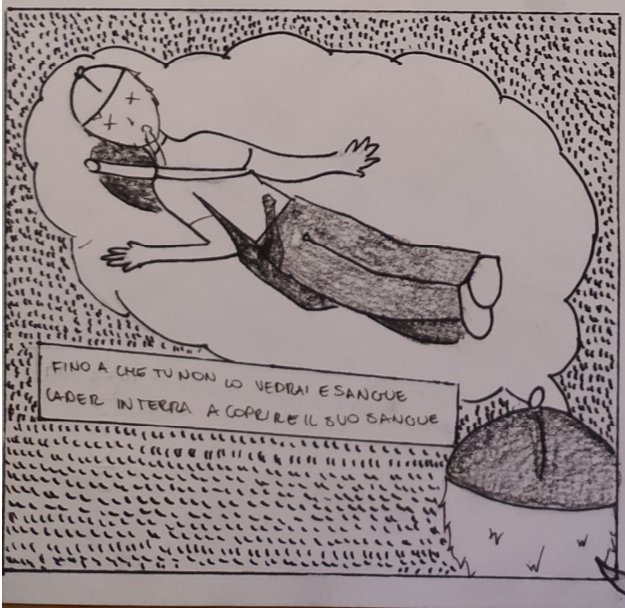 FINO A CHE TU NON LO VEDRAI ESANGUE
CADER IN TERRA A COPRIRE IL SUO SANGUE